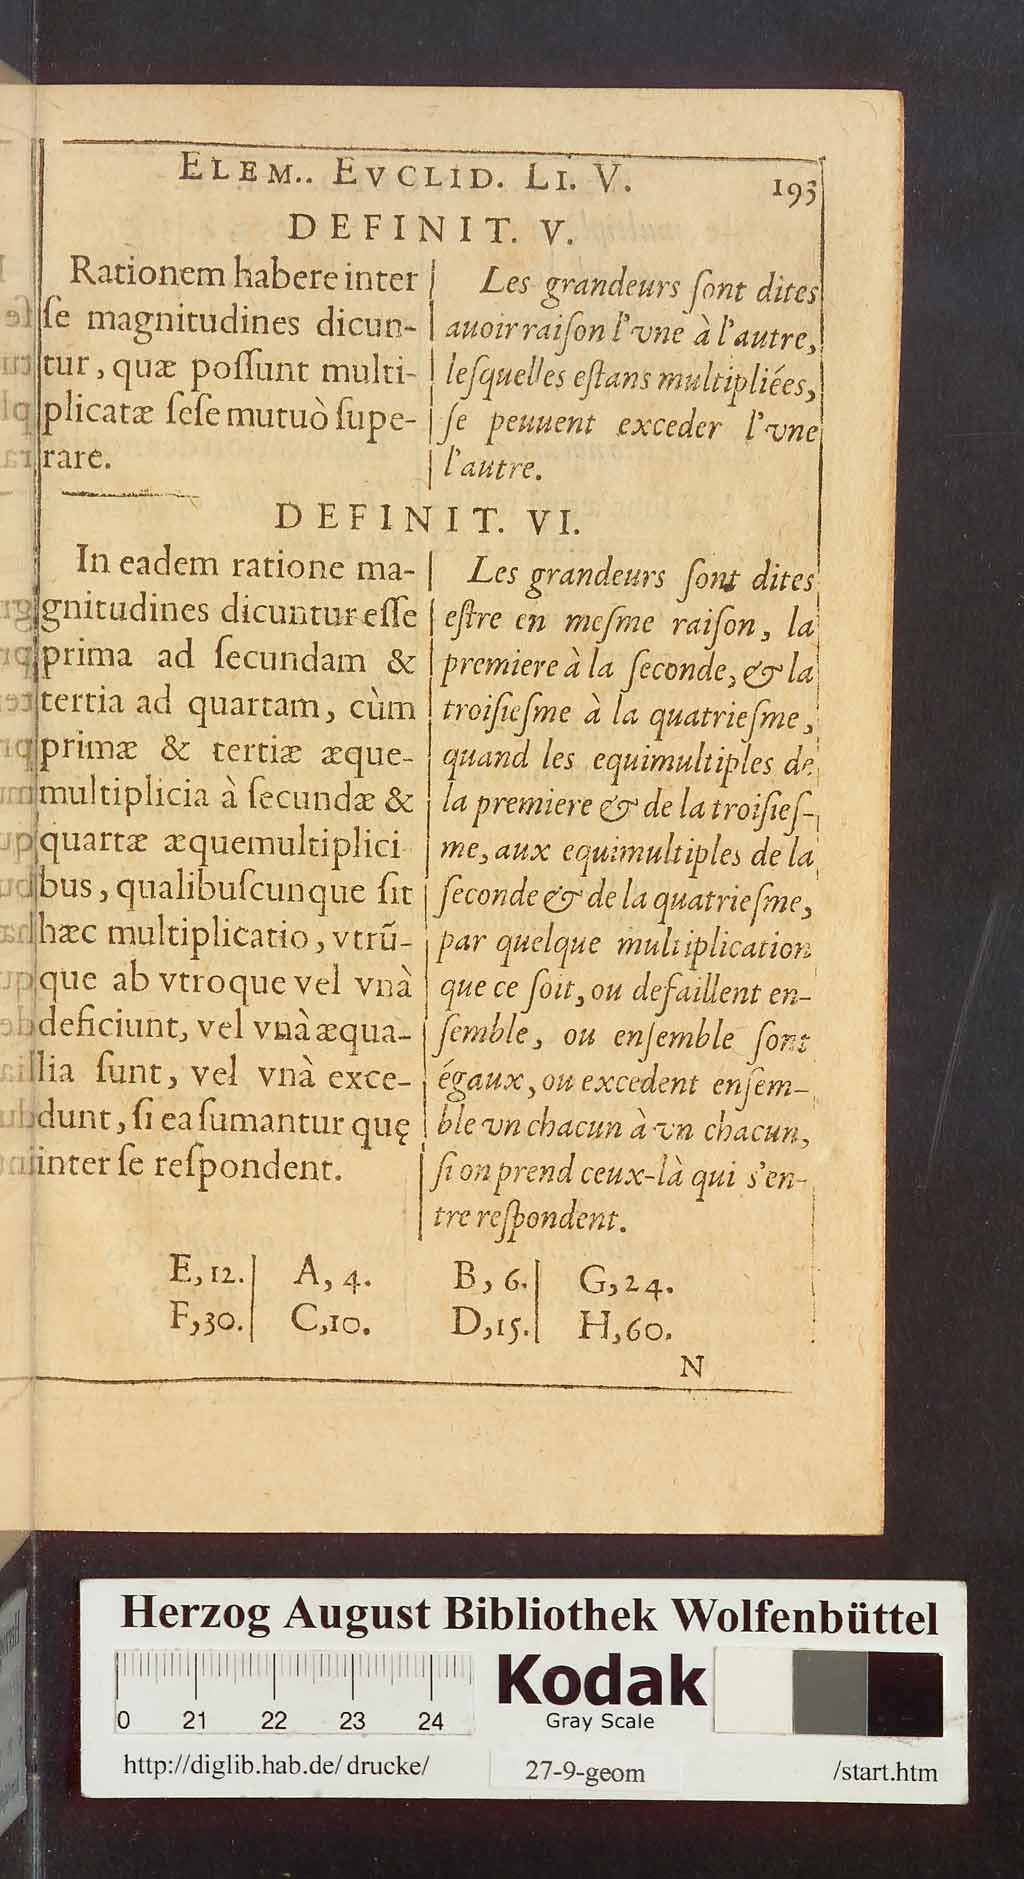 ELEM.. EVCLID. LI. V. 193
DEFINIT. V.
Rationem habere inter
ſe magnitudines dicun-
tur, quæ poſſunt multi-
plicatæ ſeſe mutuò ſupe-
rare.
Les grandeurs ſont dites
auoir raiſon l'vne à l'autre,
leſquelles eſtans multipliées,
ſe peuuent exceder l'vne
l'autre.
DEFINIT. VI.
In eadem ratione ma-
gnitudines dicuntur eſſe
prima ad ſecundam &
tertia ad quartam, cùm
primæ & tertiæ æque-
multiplicia à ſecundæ &
quartæ æquemultiplici
bus, qualibuſcunque ſit
hæc multiplicatio, vtrũ-
que ab vtroque vel vnà
deficiunt, vel vnà æqua-
lia ſunt, vel vnà exce-
dunt, ſi ea ſumantur quę
inter ſe reſpondent.
Les grandeurs ſont dites
eſtre en meſme raiſon, la
premiere à la ſeconde, & la
troiſieſme à la quatrieſme,
quand les equimultiples de
la premiere & de la troiſieſ-
me, aux equimultiples de la
ſeconde & de la quatrieſme,
par quelque multiplication
que ce ſoit, ou defaillent en-
ſemble, ou enſemble ſont
égaux, ou excedent enſem-
ble vn chacun à vn chacun,
ſi on prend ceux-là qui s'en-
tre reſpondent.
E, 12. A, 4. B, 6. G, 24.
F, 30. C, 10. D, 15. H, 60.
N
Herzog August Bibliothek Wolfenbüttel
Kodak
Gray Scale
0 21 22 23 24
http://diglib.hab.de/ drucke/ 27-9-geom /start.htm